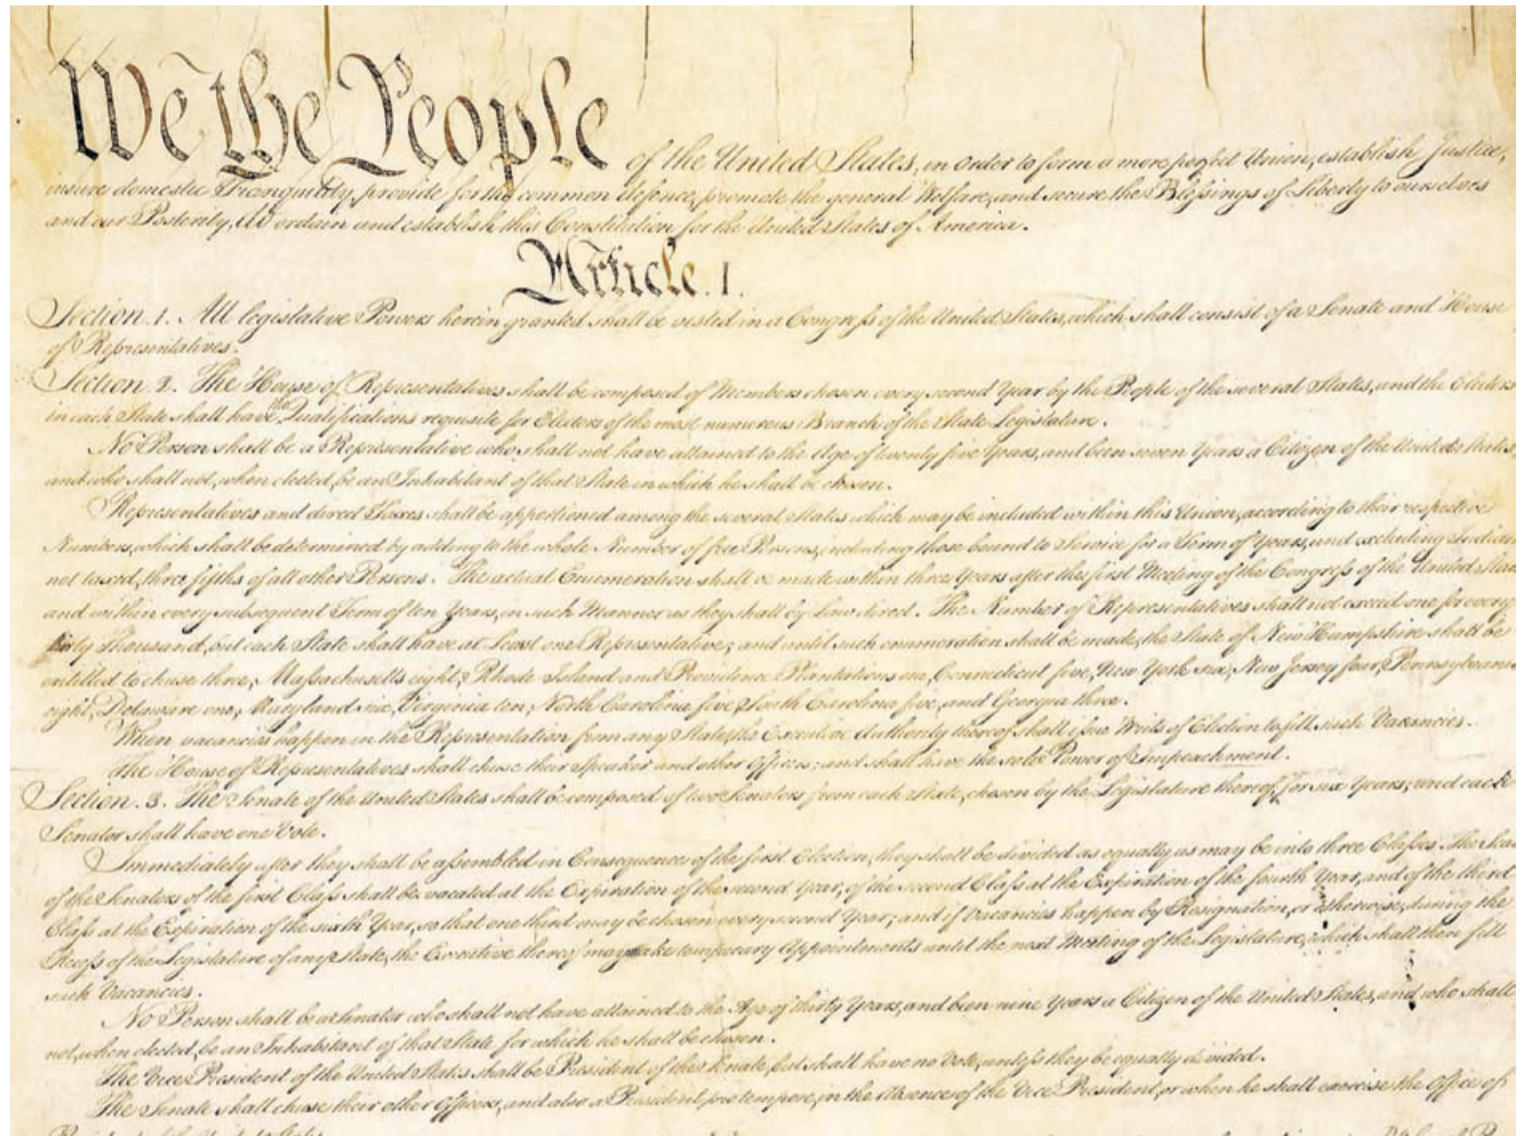 We the People of the United States, in Order to form a more perfect Union, establish Justice,
insure domestic Tranquility, provide for the common defence, promote the general Welfare, and secure the Blessings of Liberty to ourselves
and our Posterity, do ordain and establish this Constitution for the United States of America.
Article. I.
Section. 1. All legislative Powers herein granted shall be vested in a Congress of the United States, which shall consist of a Senate and House
of Representatives.
Section. 2. The House of Representatives shall be composed of Members chosen every second Year by the People of the several States, and the Electors
in each State shall have the Qualifications requisite for Electors of the most numerous Branch of the State Legislature.
No Person shall be a Representative who shall not have attained to the Age of twenty five Years, and been seven Years a Citizen of the United States,
and who shall not, when elected, be an Inhabitant of that State in which he shall be chosen.
Representatives and direct Taxes shall be apportioned among the several States which may be included within this Union, according to their respective
Numbers, which shall be determined by adding to the whole Number of free Persons, including those bound to Service for a Term of Years, and excluding Indian
not taxed, three fifths of all other Persons. The actual Enumeration shall be made within three Years after the first Meeting of the Congress of the United Stat
and within every subsequent Term of ten Years, in such Manner as they shall by Law direct. The Number of Representatives shall not exceed one for every
thirty Thousand, but each State shall have at Least one Representative; and until such enumeration shall be made, the State of New Hampshire shall be
entitled to chuse three, Massachusetts eight, Rhode Island and Providence Plantations one, Connecticut five, New York six, New Jersey four, Pennsylvania
eight, Delaware one, Maryland six, Virginia ten, North Carolina five, South Carolina five, and Georgia three.
When vacancies happen in the Representation from any State, the Executive Authority thereof shall issue Writs of Election to fill such Vacancies.
The House of Representatives shall chuse their Speaker and other Officers; and shall have the sole Power of Impeachment.
Section. 3. The Senate of the United States shall be composed of two Senators from each State, chosen by the Legislature thereof, for six Years; and each
Senator shall have one Vote.
Immediately after they shall be assembled in Consequence of the first Election, they shall be divided as equally as may be into three Classes. The Sea
of the Senators of the first Class shall be vacated at the Expiration of the second Year, of the second Class at the Expiration of the fourth Year, and of the third
Class at the Expiration of the sixth Year, so that one third may be chosen every second Year; and if Vacancies happen by Resignation, or otherwise, during the
Recess of the Legislature of any State, the Executive thereof may make temporary Appointments until the next Meeting of the Legislature, which shall then fill
such Vacancies.
No Person shall be a Senator who shall not have attained to the Age of thirty Years, and been nine Years a Citizen of the United States, and who shall
not, when elected, be an Inhabitant of that State for which he shall be chosen.
The Vice President of the United States shall be President of the Senate, but shall have no Vote, unless they be equally divided.
The Senate shall chuse their other Officers, and also a President pro tempore, in the Absence of the Vice President, or when he shall exercise the Office of